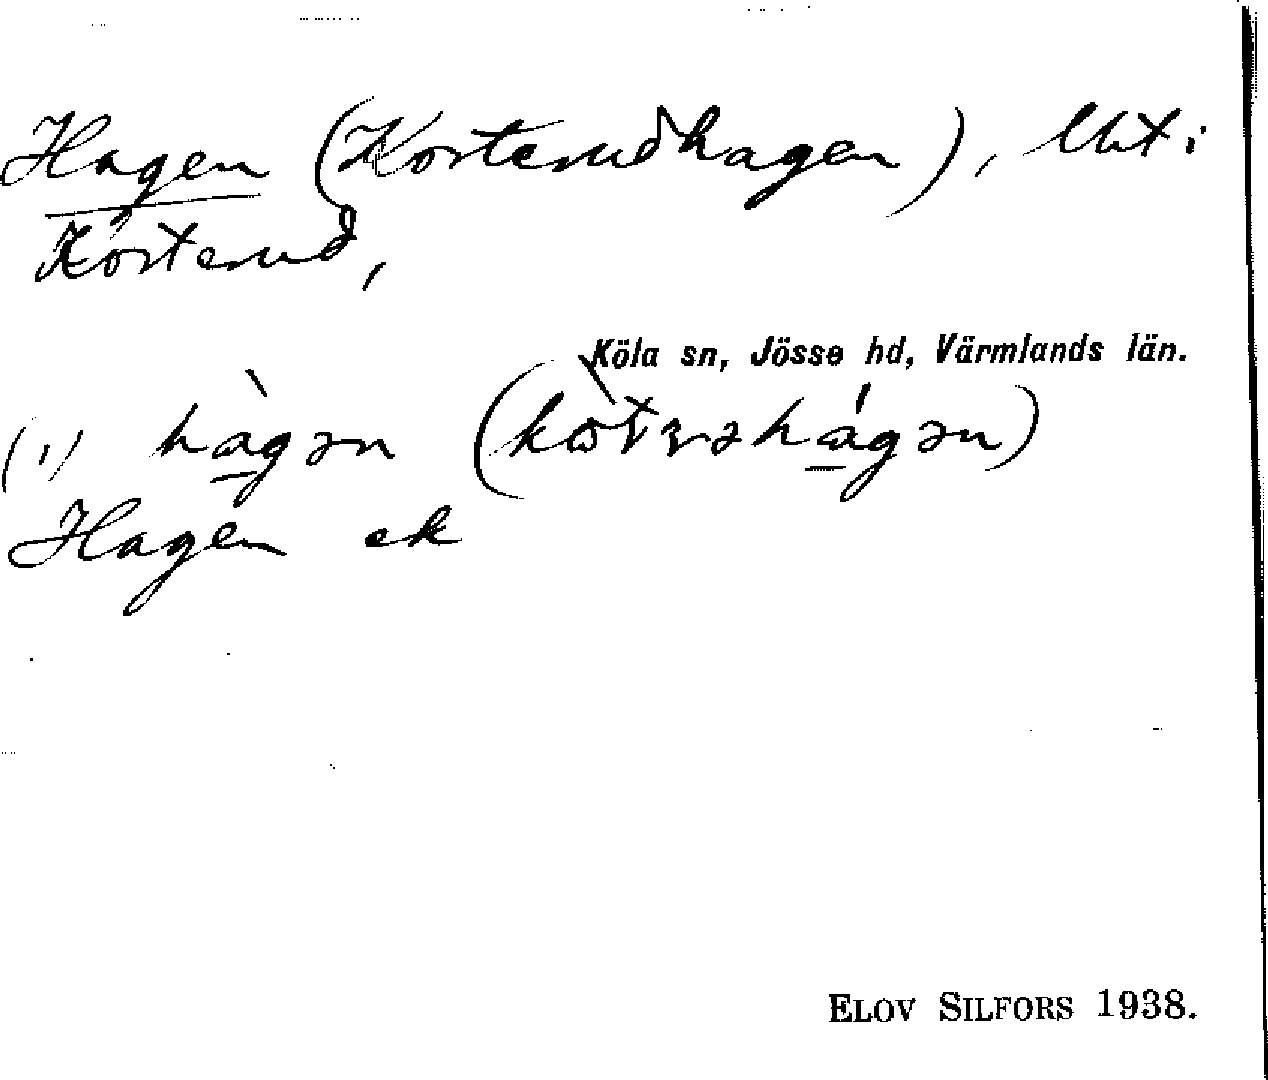 Hagen (Korterudhagen), lht i
Korterud,
Köla sn, Jösse hd, Värmlands län.
(1) hàgən
Hagen ek
ELOV SILFORS 1938.